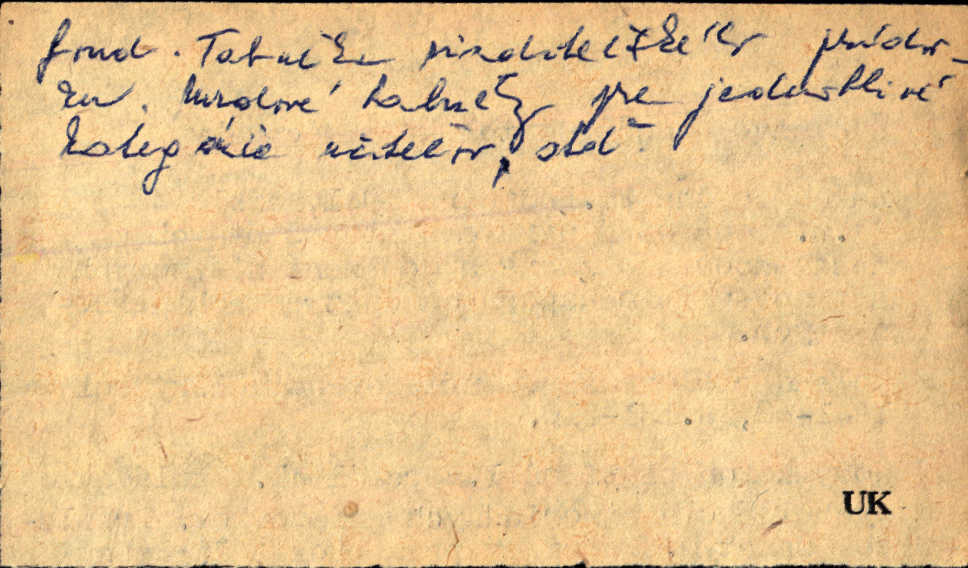 fond. Tabuľka riaditeľských prídav-
kov. Mzdové tabuľky pre jednotlivé
kategórie učiteľov, atď.
UK